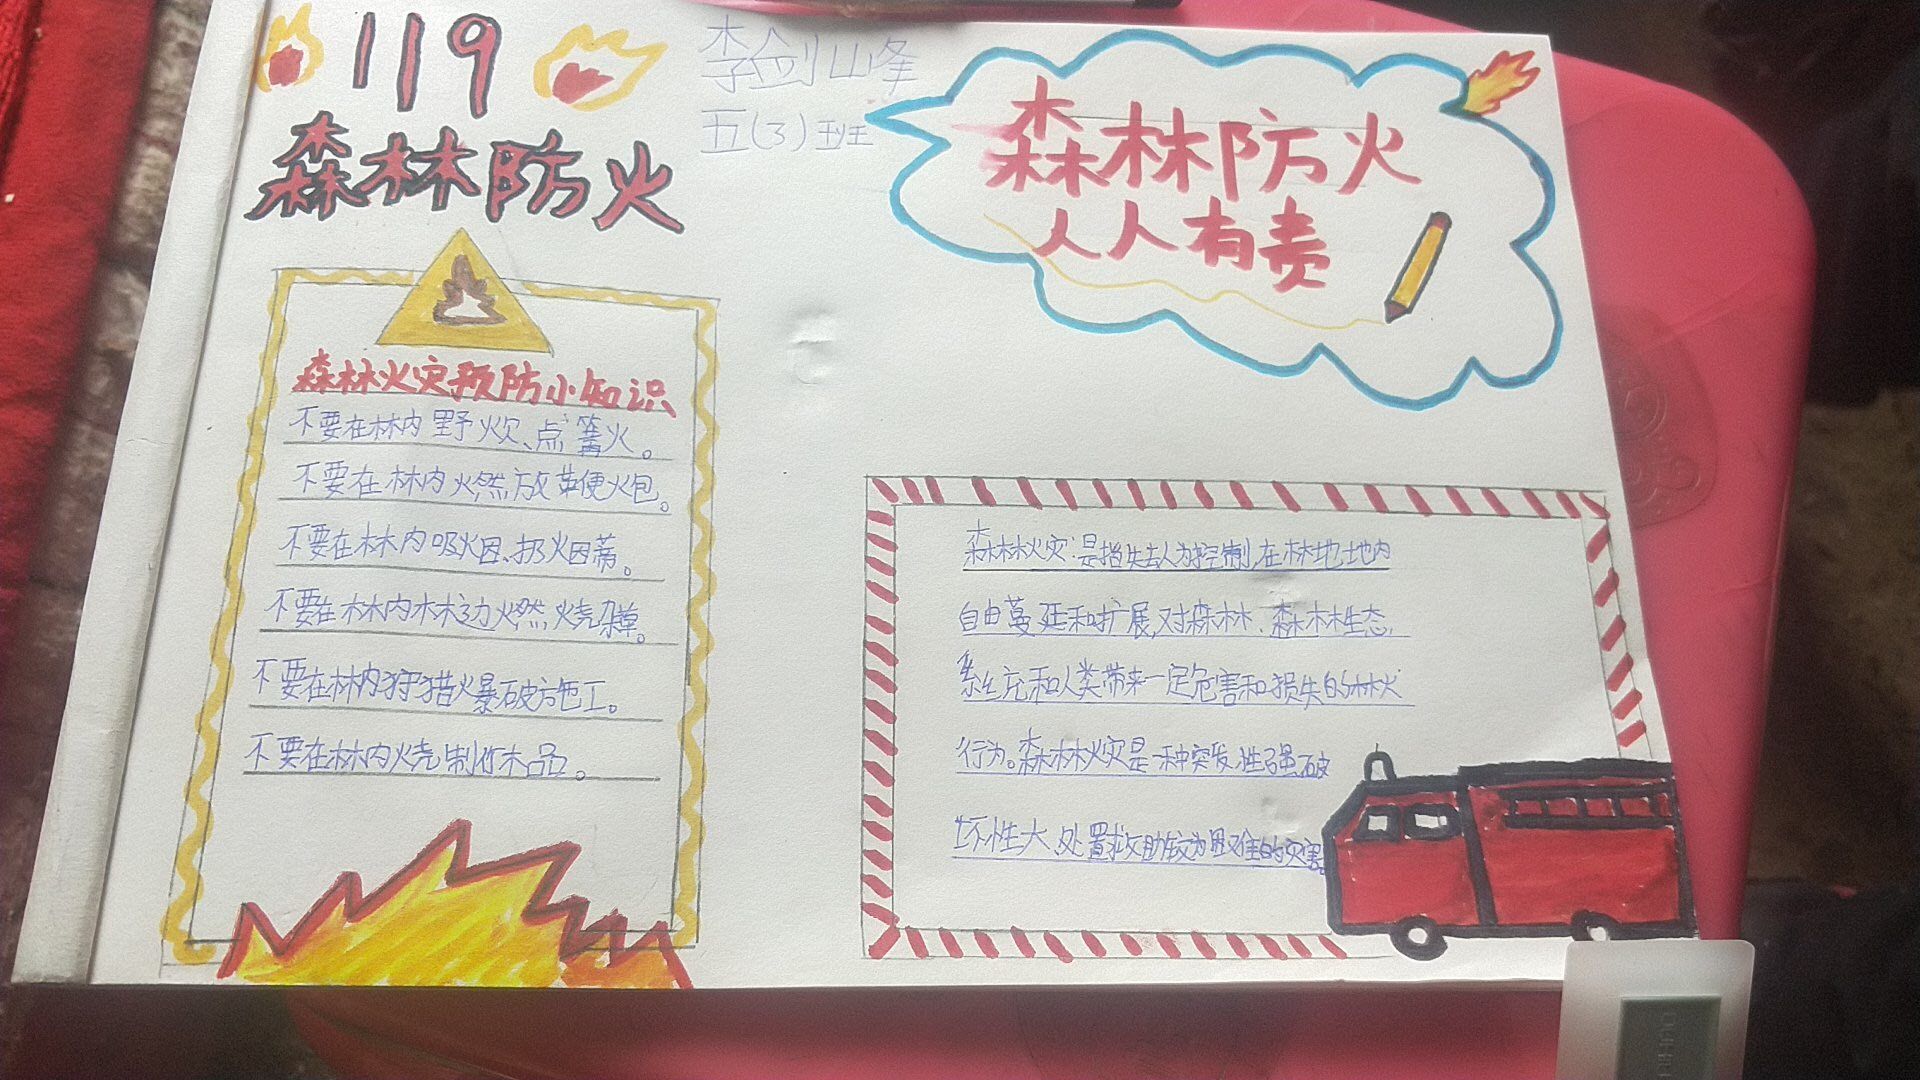 119
森林防火
李剑山峰
五(3)班
森林防火
人人有责
森林火灾预防小知识
不要在林内野炊、点篝火。
不要在林内火然放革便火包。
不要在林内吸火因、扔火因蒂。
不要在林内林边火然烧杂草。
不要在林内狩猎火暴破施工。
不要在林内烧制作木品。
森林火灾:是指失去人为控制,在林地地内
自由蔓延和扩展,对森林、森林生态,
系统和人类带来一定危害和损失的林火
行为。森林火灾是一种突发性强破
坏性大、处置救助较为困难的灾害。